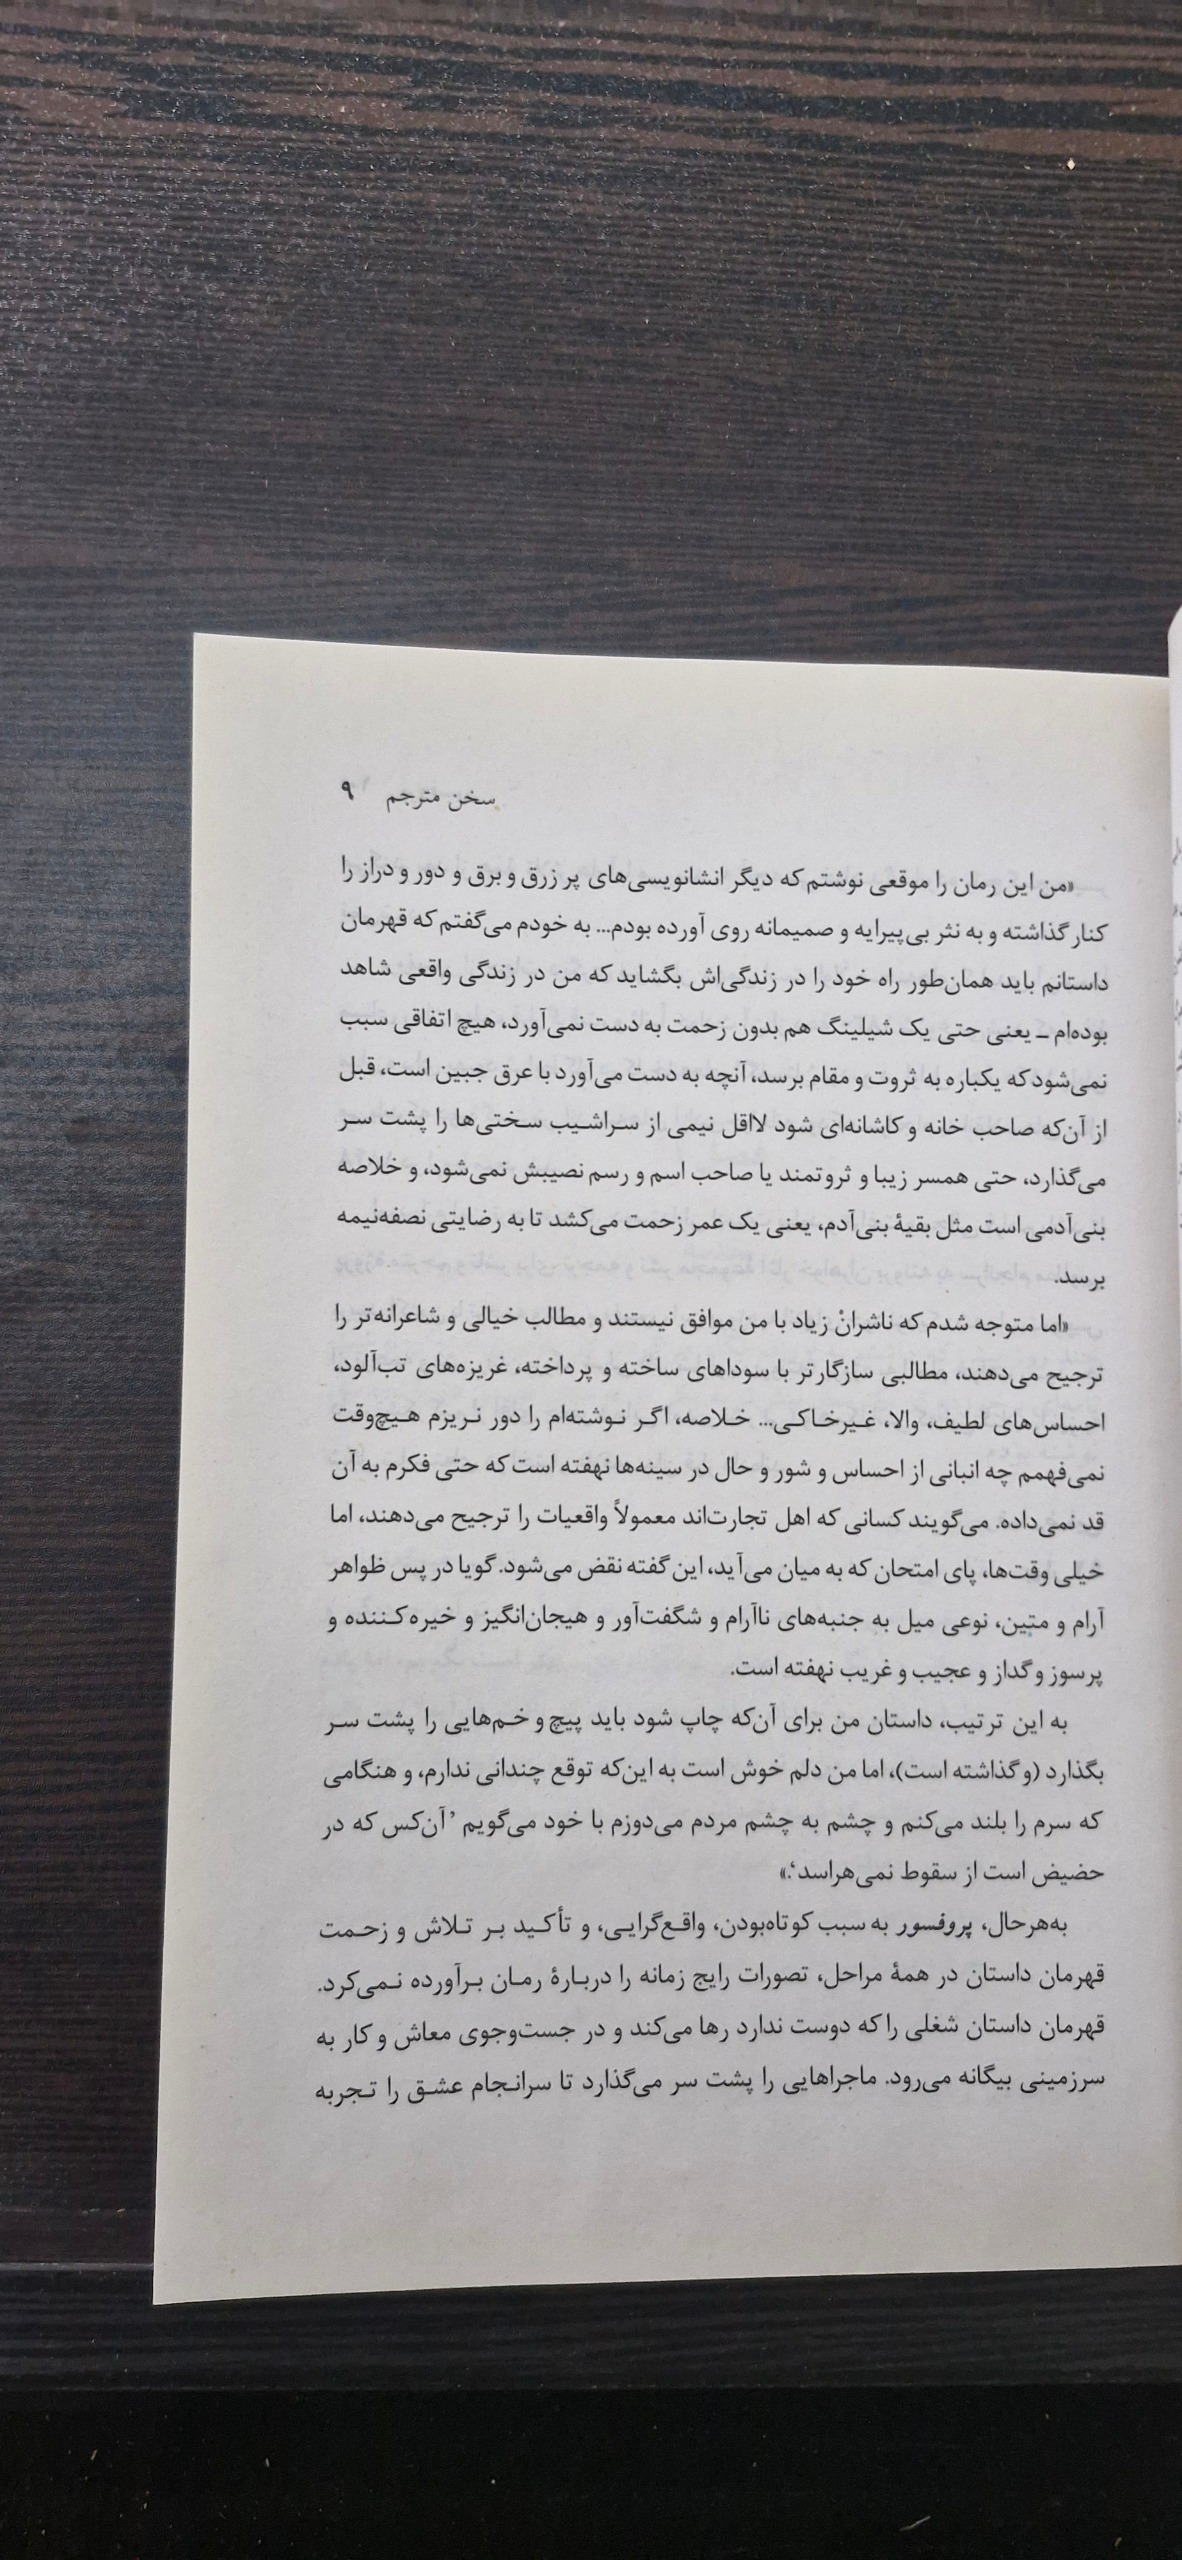 سخن مترجم ۹
«من این رمان را موقعی نوشتم که دیگر انشانویسی‌های پر زرق و برق و دور و دراز را
کنار گذاشته و به نثر بی‌پیرایه و صمیمانه روی آورده بودم... به خودم می‌گفتم که قهرمان
داستانم باید همان‌طور راه خود را در زندگی‌اش بگشاید که من در زندگی واقعی شاهد
بوده‌ام ــ یعنی حتی یک شیلینگ هم بدون زحمت به دست نمی‌آورد، هیچ اتفاقی سبب
نمی‌شود که یکباره به ثروت و مقام برسد، آنچه به دست می‌آورد با عرق جبین است، قبل
از آن‌که صاحب خانه و کاشانه‌ای شود لااقل نیمی از سراشیب سختی‌ها را پشت سر
می‌گذارد، حتی همسر زیبا و ثروتمند یا صاحب اسم و رسم نصیبش نمی‌شود، و خلاصه
بنی‌آدمی است مثل بقیهٔ بنی‌آدم، یعنی یک عمر زحمت می‌کشد تا به رضایتی نصفه‌نیمه
برسد.
«اما متوجه شدم که ناشرانْ زیاد با من موافق نیستند و مطالب خیالی و شاعرانه‌تر را
ترجیح می‌دهند، مطالبی سازگارتر با سوداهای ساخته و پرداخته، غریزه‌های تب‌آلود،
احساس‌های لطیف، والا، غیرخاکی... خلاصه، اگر نوشته‌ام را دور نریزم هیچ‌وقت
نمی‌فهمم چه انبانی از احساس و شور و حال در سینه‌ها نهفته است که حتی فکرم به آن
قد نمی‌داده. می‌گویند کسانی که اهل تجارت‌اند معمولاً واقعیات را ترجیح می‌دهند، اما
خیلی وقت‌ها، پای امتحان که به میان می‌آید، این گفته نقض می‌شود. گویا در پس ظواهر
آرام و متین، نوعی میل به جنبه‌های ناآرام و شگفت‌آور و هیجان‌انگیز و خیره‌کننده و
پرسوز و گداز و عجیب و غریب نهفته است.
به این ترتیب، داستان من برای آن‌که چاپ شود باید پیچ و خم‌هایی را پشت سر
بگذارد (و گذاشته است)، اما من دلم خوش است به این‌که توقع چندانی ندارم، و هنگامی
که سرم را بلند می‌کنم و چشم به چشم مردم می‌دوزم با خود می‌گویم ’آن‌کس که در
حضیض است از سقوط نمی‌هراسد‘.»
به‌هرحال، پروفسور به سبب کوتاه‌بودن، واقع‌گرایی، و تأکید بر تلاش و زحمت
قهرمان داستان در همهٔ مراحل، تصورات رایج زمانه را دربارهٔ رمان برآورده نمی‌کرد.
قهرمان داستان شغلی را که دوست ندارد رها می‌کند و در جست‌وجوی معاش و کار به
سرزمینی بیگانه می‌رود. ماجراهایی را پشت سر می‌گذارد تا سرانجام عشق را تجربه